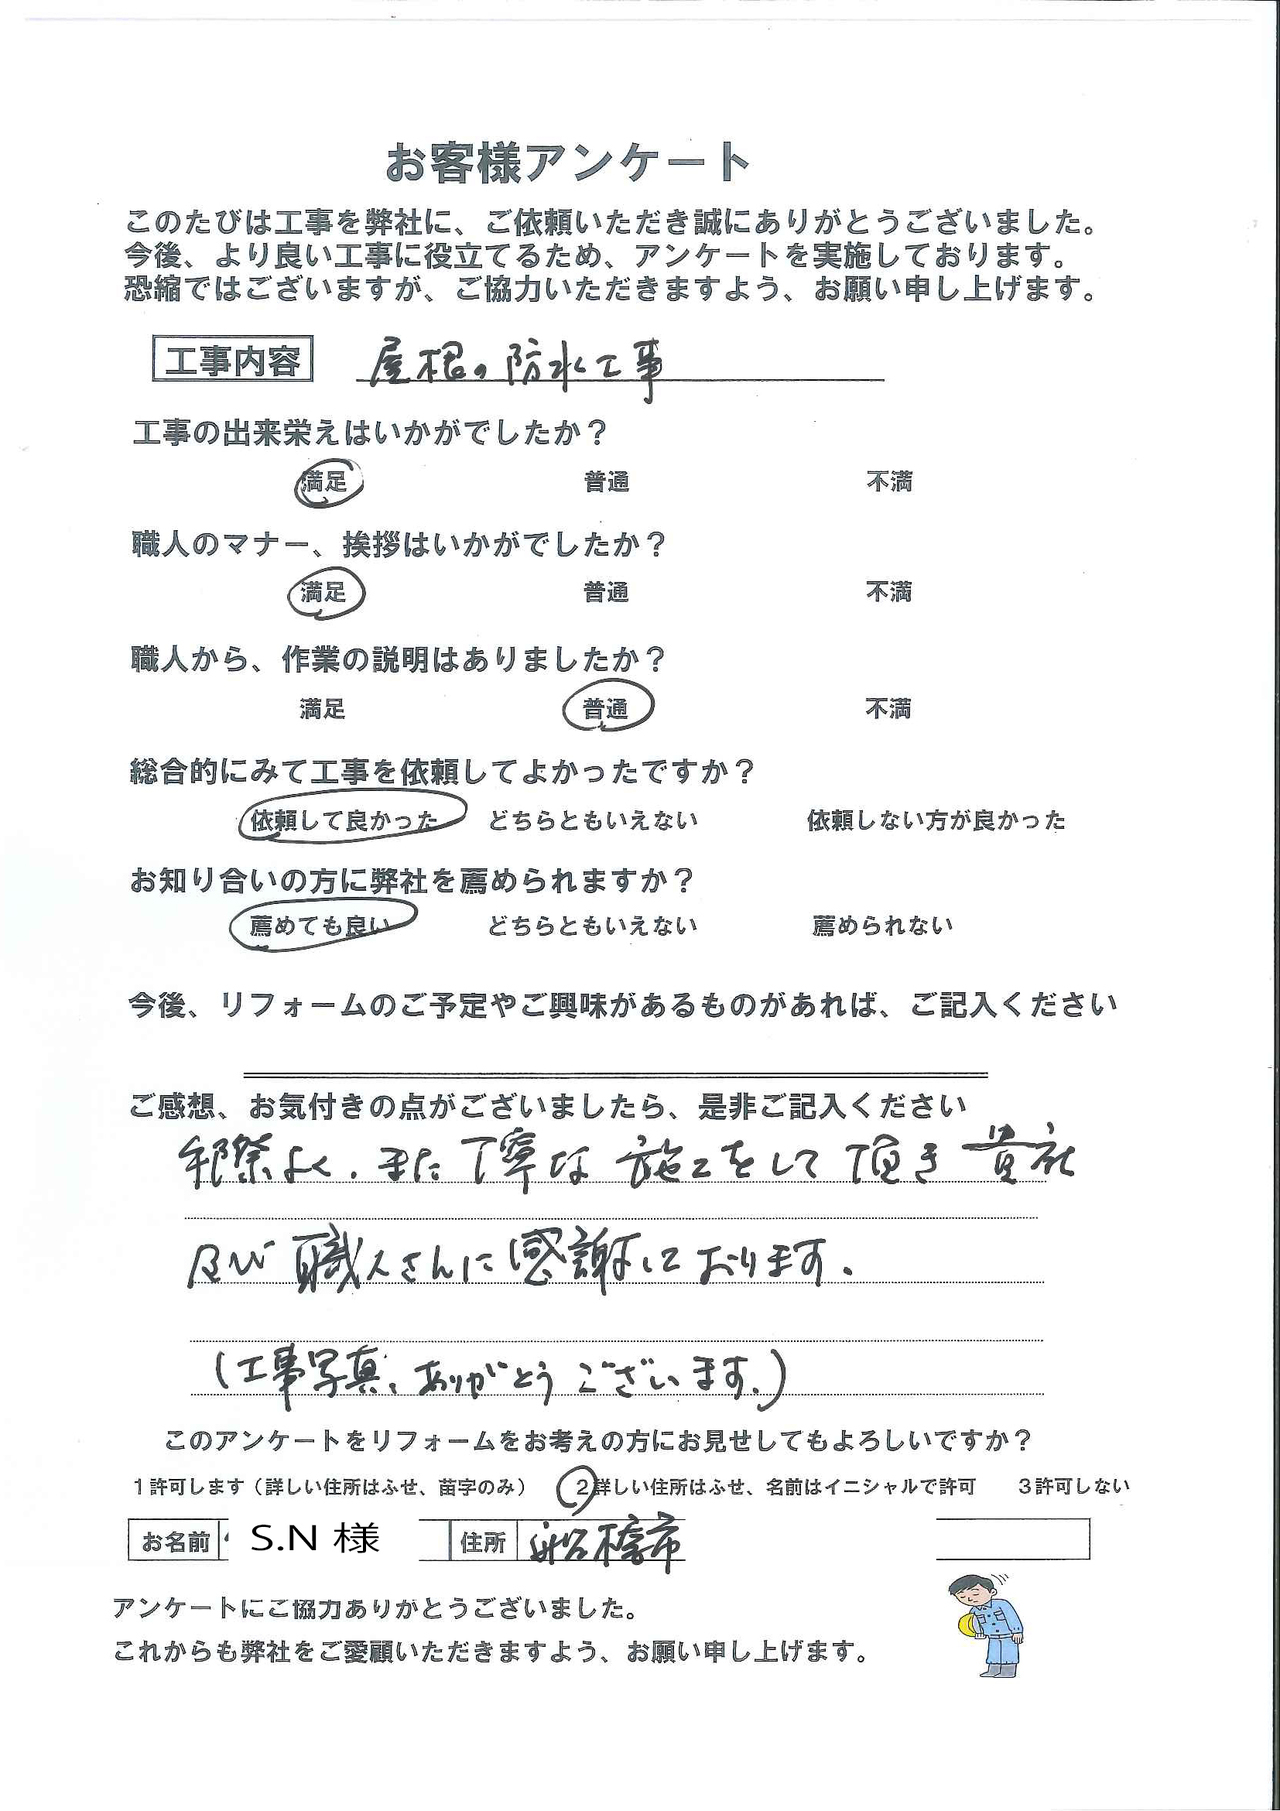 お客様アンケート
このたびは工事を弊社に、ご依頼いただき誠にありがとうございました。
今後、より良い工事に役立てるため、アンケートを実施しております。
恐縮ではございますが、ご協力いただきますよう、お願い申し上げます。
工事内容 屋根の防水工事
工事の出来栄えはいかがでしたか？
満足 普通 不満
職人のマナー、挨拶はいかがでしたか？
満足 普通 不満
職人から、作業の説明はありましたか？
満足 普通 不満
総合的にみて工事を依頼してよかったですか？
依頼して良かった どちらともいえない 依頼しない方が良かった
お知り合いの方に弊社を薦められますか？
薦めても良い どちらともいえない 薦められない
今後、リフォームのご予定やご興味があるものがあれば、ご記入ください
ご感想、お気付きの点がございましたら、是非ご記入ください
手際よく、また丁寧な施工をして頂き貴社
及び職人さんに感謝しております。
(工事写真、ありがとうございます。)
このアンケートをリフォームをお考えの方にお見せしてもよろしいですか？
1許可します（詳しい住所はふせ、苗字のみ） 2詳しい住所はふせ、名前はイニシャルで許可 3許可しない
お名前 S.N 様 住所 船橋市
アンケートにご協力ありがとうございました。
これからも弊社をご愛顧いただきますよう、お願い申し上げます。